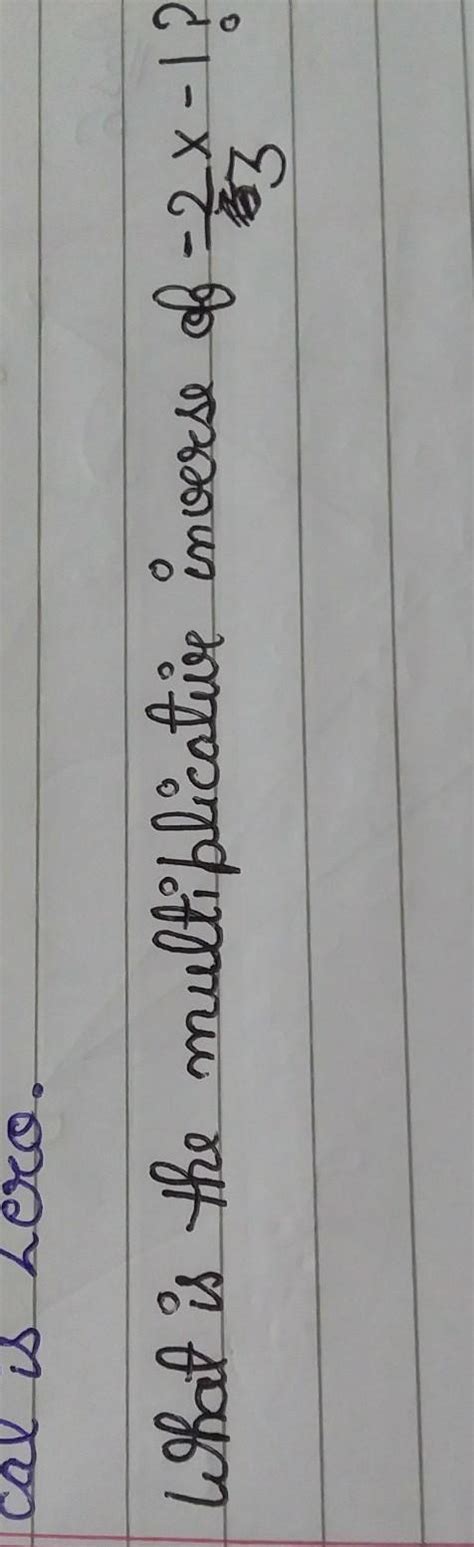 cal is zero.
What is the multiplicative inverse of -2/3 x -1?